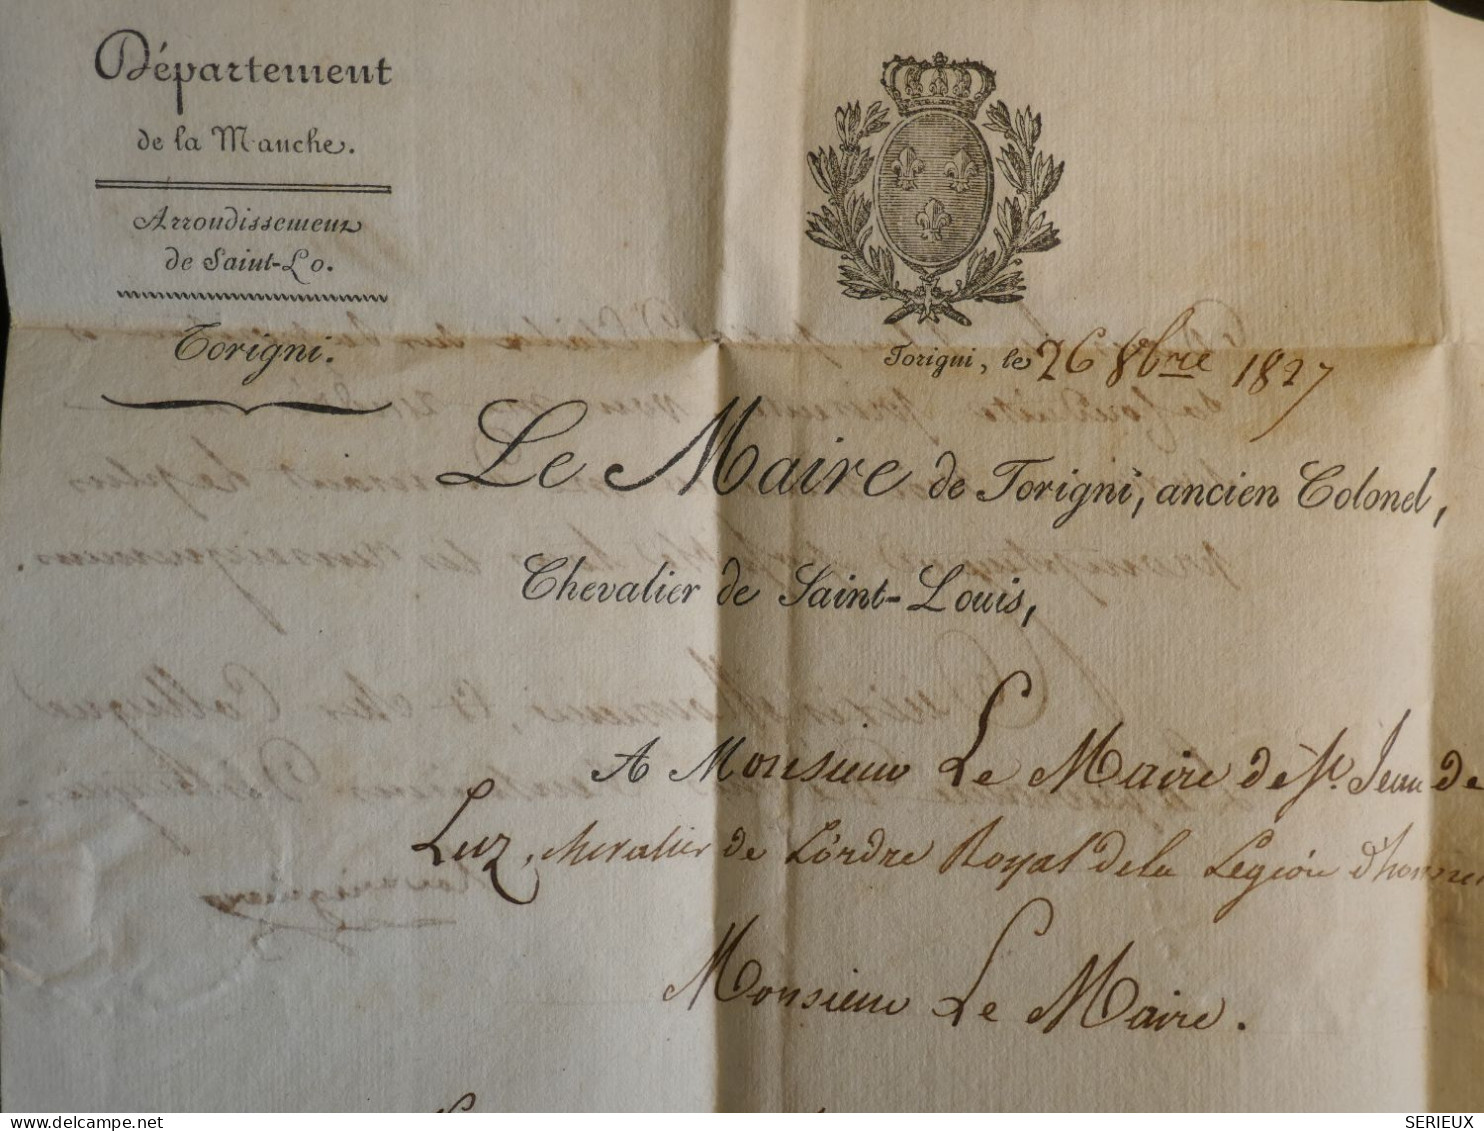 Département
de la Manche.
Arrondissement
de Saint-Lo.
Torigni.
Torigni, le 26 8bre 1827
Le Maire de Torigni, ancien Colonel,
Chevalier de Saint-Louis,
A Monsieur Le Maire de St. Jean de
Luz, chevalier de L'ordre Royal de la Legion d'honneur
Monsieur Le Maire.
SERIEUX